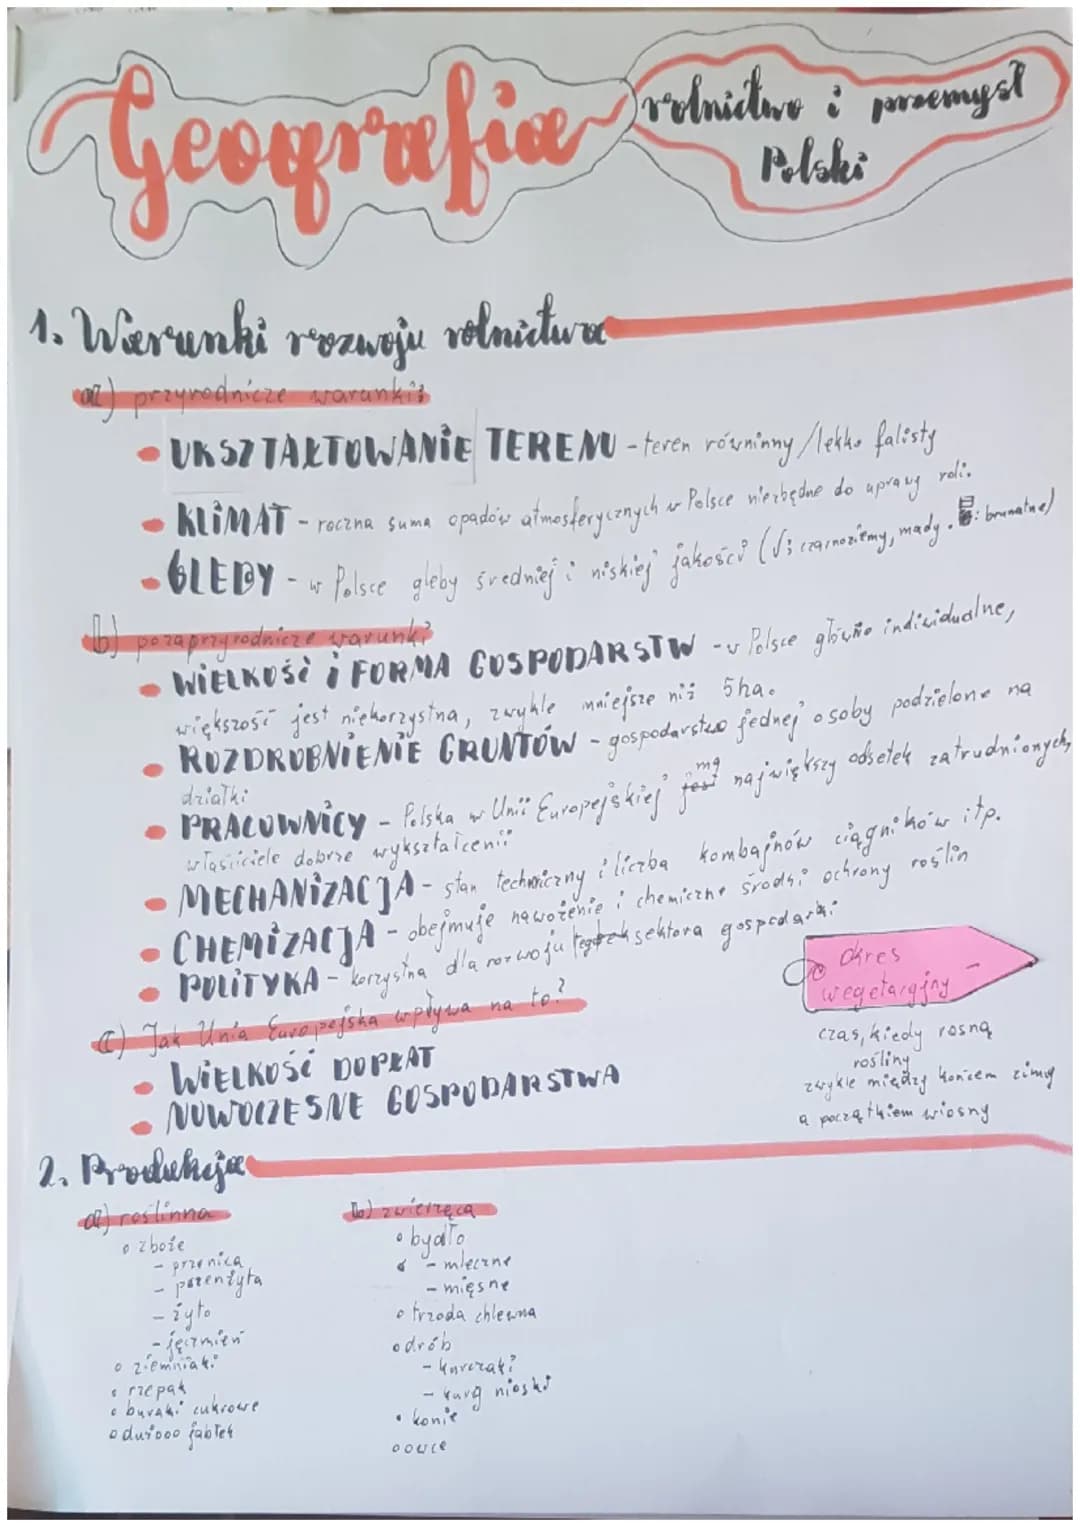 Geografia
rolnictwo i przemysł
Polski
1. Warunki rozwoju rolnictwa
a) przyrodnicze warunki:
• UKSZTAŁTOWANIE TERENU - teren równinny/lekko falisty
• KLIMAT - roczna suma opadów atmosferycznych w Polsce niezbędne do uprawy roli.
• GLEBY - w Polsce gleby średniej i niskiej jakości (√: czarnoziemy, mady. : brunatne)
b) pozaprzyrodnicze warunki
• WIELKOŚĆ i FORMA GOSPODARSTW - w Polsce głównie indiwidualne,
większość jest niekorzystna, zwykle mniejsze niż 5ha.
• ROZDROBNIENIE GRUNTÓW - gospodarstwo jednej osoby podzielone na
działki
• PRACOWNICY - Polska w Unii Europejskiej ma największy odsetek zatrudnionych,
właściciele dobrze wykształcenii
• MECHANIZACJA - stan techniczny i liczba kombajnów ciągników itp.
• CHEMIZACJA - obejmuje nawożenie i chemiczne środki ochrony roślin
• POLITYKA - korzystna dla rozwoju sektora gospodarki
c) Jak Unia Europejska wpływa na to?
• WIELKOŚĆ DOPŁAT
• NOWOCZESNE GOSPODARSTWA
okres
wegetacyjny -
czas, kiedy rosną
rośliny
zwykle między końcem zimy
a początkiem wiosny
2. Produkcja
a) roślinna
o zboże
- przenica
- pszenżyta
- żyto
- jęczmień
o ziemniaki
o rzepak
o buraki cukrowe
o dużooo jabłek
b) zwierzęca
o bydło
- mleczne
- mięsne
o trzoda chlewna
o drób
- kurczaki
- kury nioski
• konie
o owce